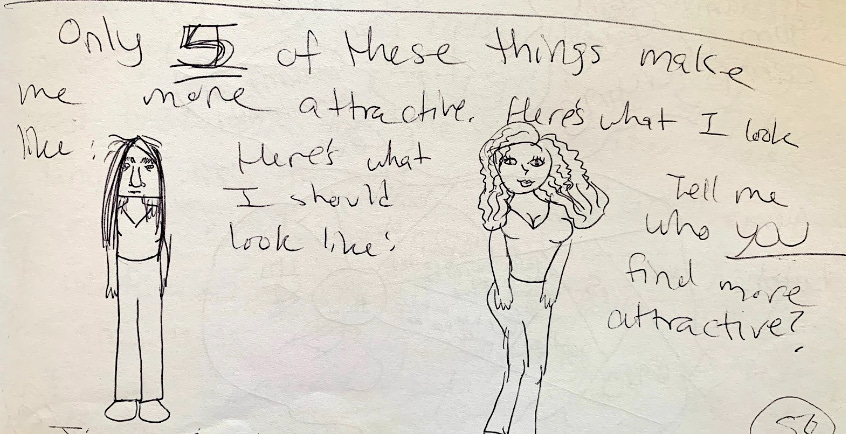 Only 5 of these things make
me more attractive. Here's what I look
like:
Here's what
I should
look like:
Tell me
who you
find more
attractive?
56